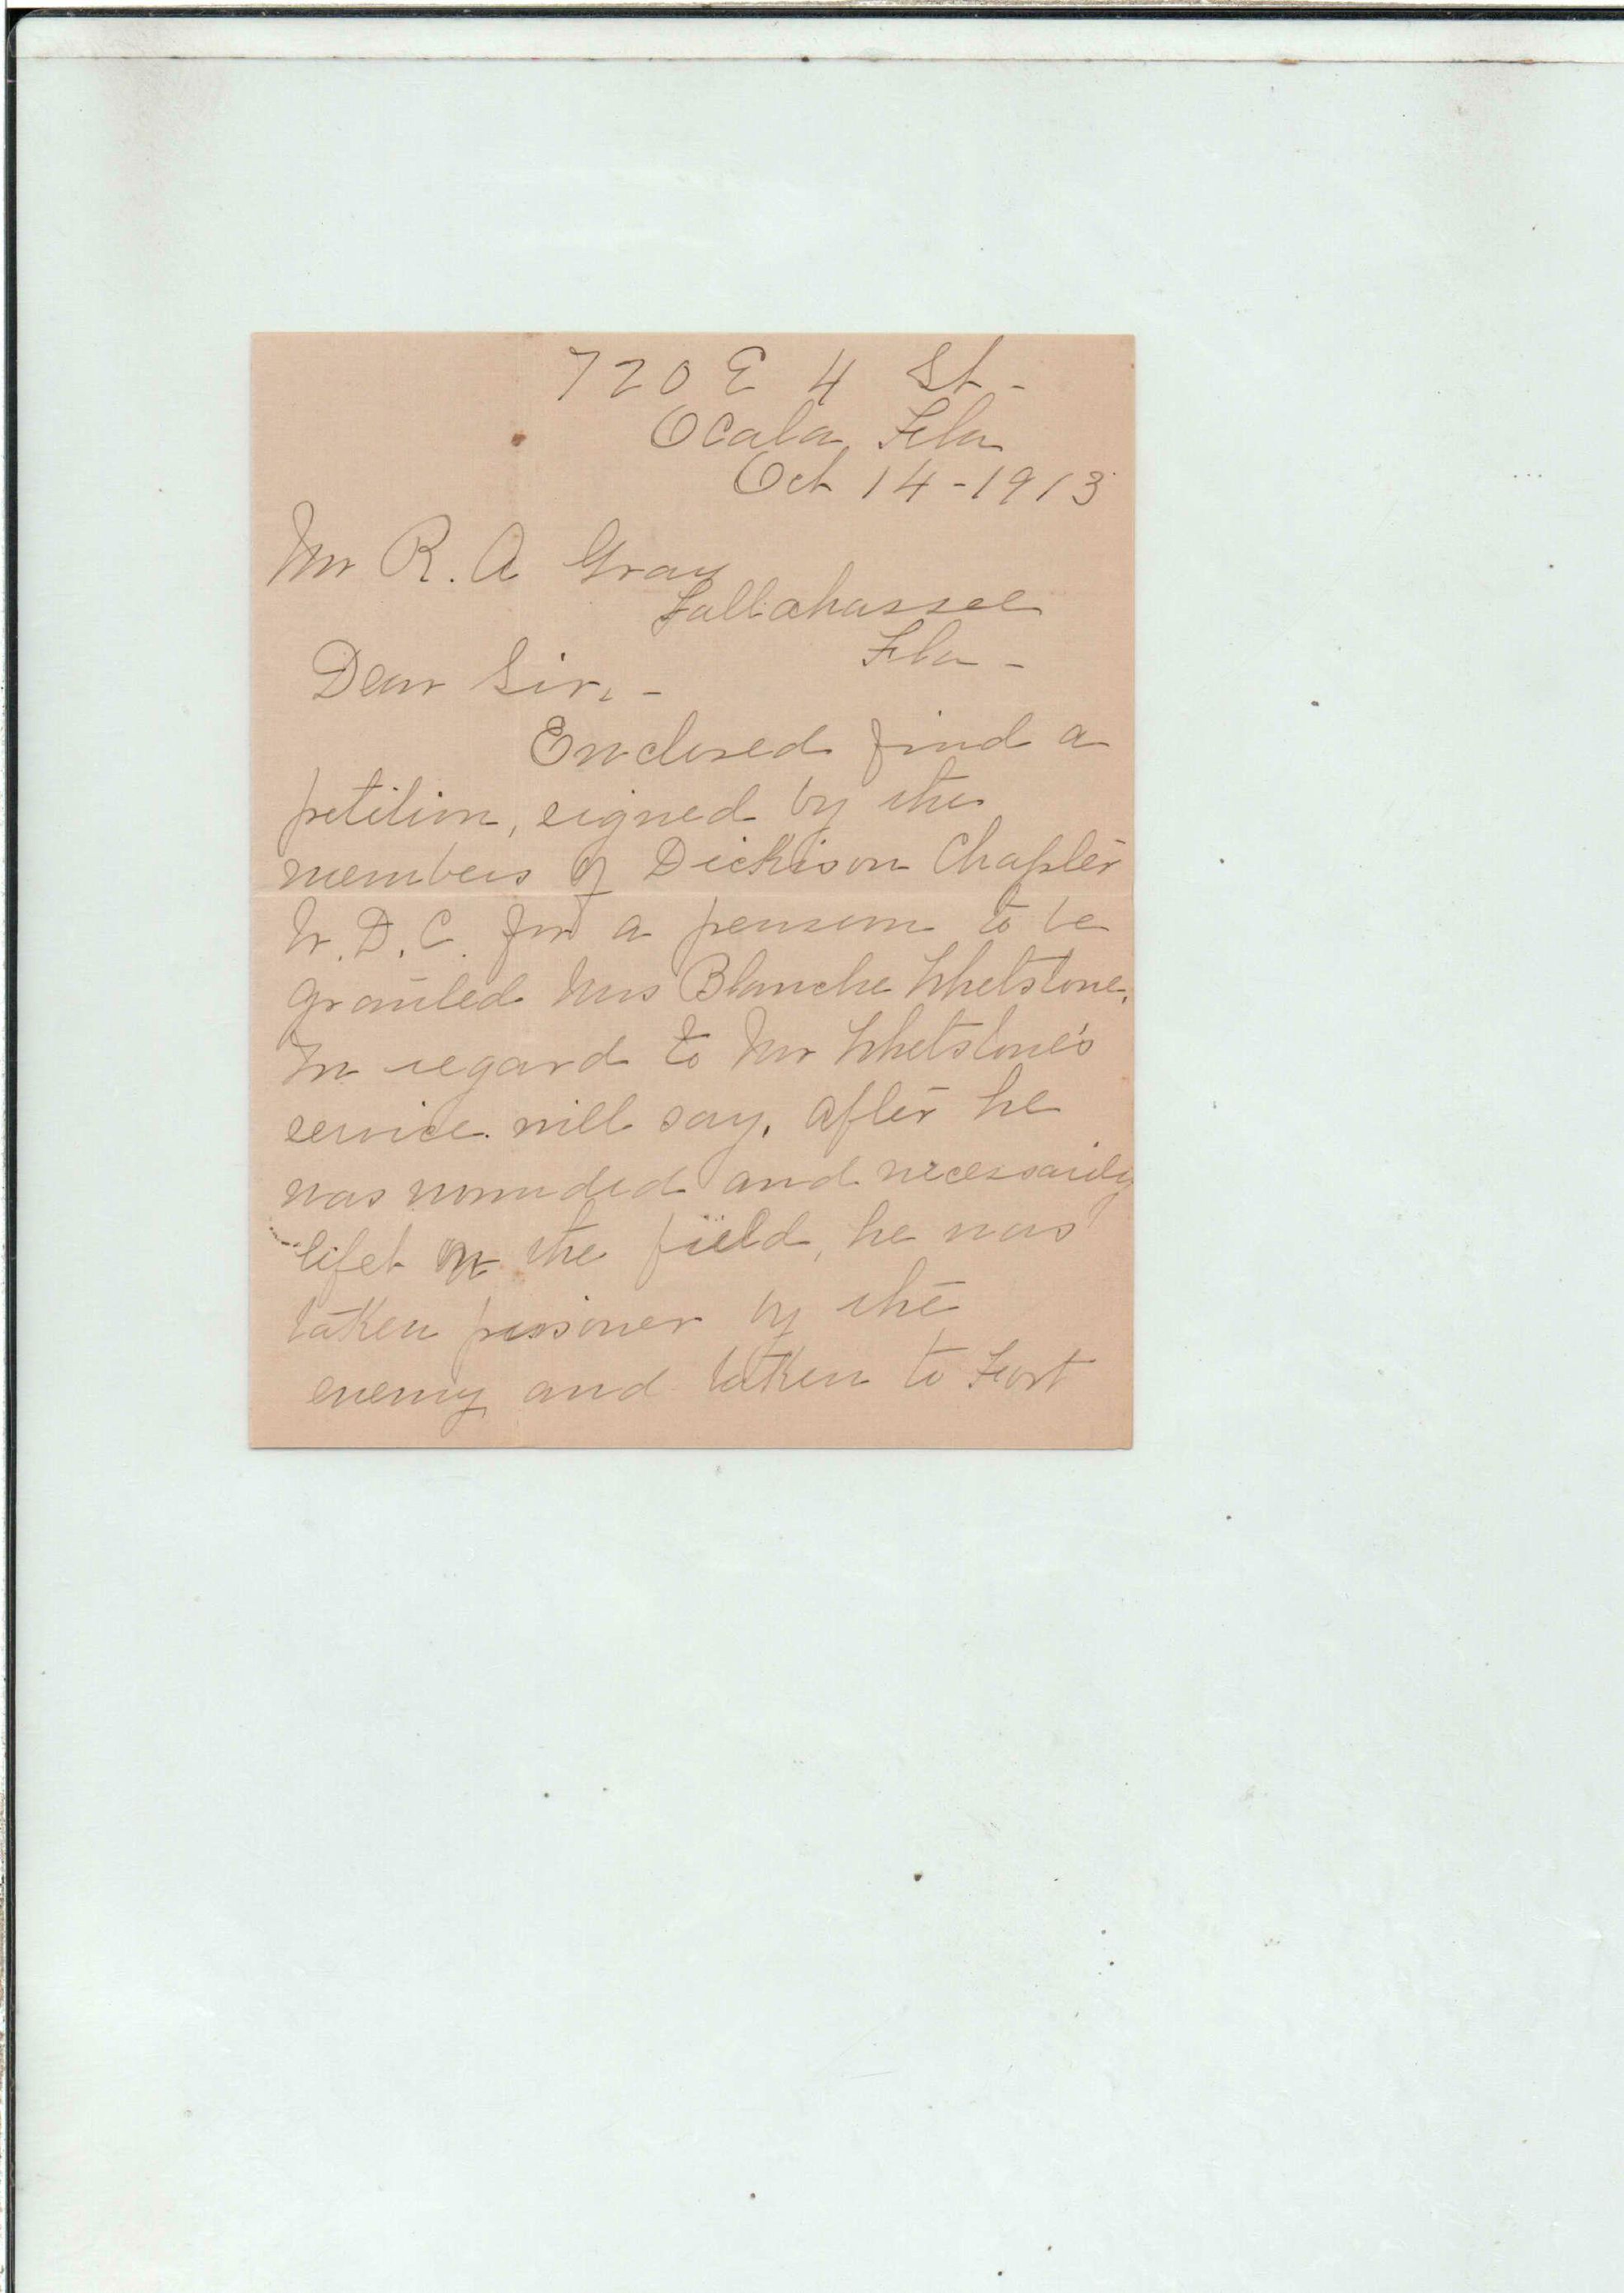 720 E 4 St -
Ocala, Fla
Oct 14-1913
Mr R. A Gray
Tallahassee
Fla -
Dear Sir, -
Enclosed find a
petition, signed by the
members of Dickison Chapter
U. D. C. for a pension to be
granted Mrs Blanche Whetstone.
In regard to Mr Whetstone's
service will say, after he
was wounded and necessarily
lifet on the field, he was
taken prisoner by the
enemy and taken to Fort